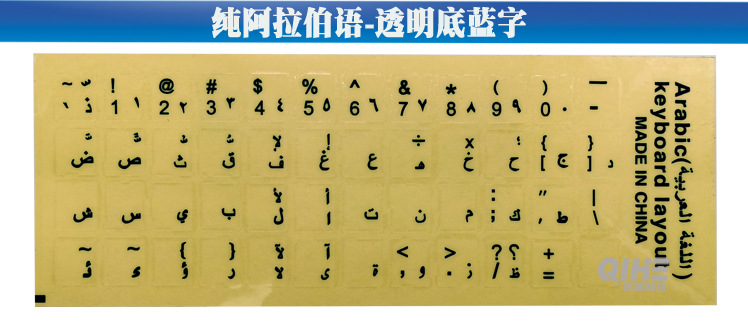 纯阿拉伯语-透明底蓝字
~ ّ ! @ # $ % ^ & * ( ) —
ذ 1 ١ 2 ٢ 3 ٣ 4 ٤ 5 ٥ 6 ٦ 7 ٧ 8 ٨ 9 ٩ 0 ٠ -
÷ x ؛ { }
ض ص ث ق ف غ ع ه خ ح [ ج ] د
لإ إ
لأ أ : " |
ش س ي ب ل ا ت ن م ; ك , ط \
~ ~ { } لآ آ < > ? ؟ +
ئ ء ؤ ر لا ى ة , و . ز / ظ =
Arabic(اللغة العربية)
keyboard layout
MADE IN CHINA
QIHE